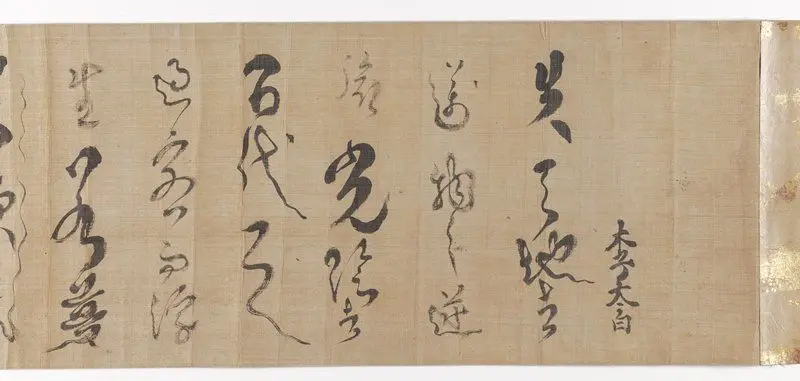 李太白
夫天地者
萬物之逆
旅光陰者
百代之
過客而浮
生若夢